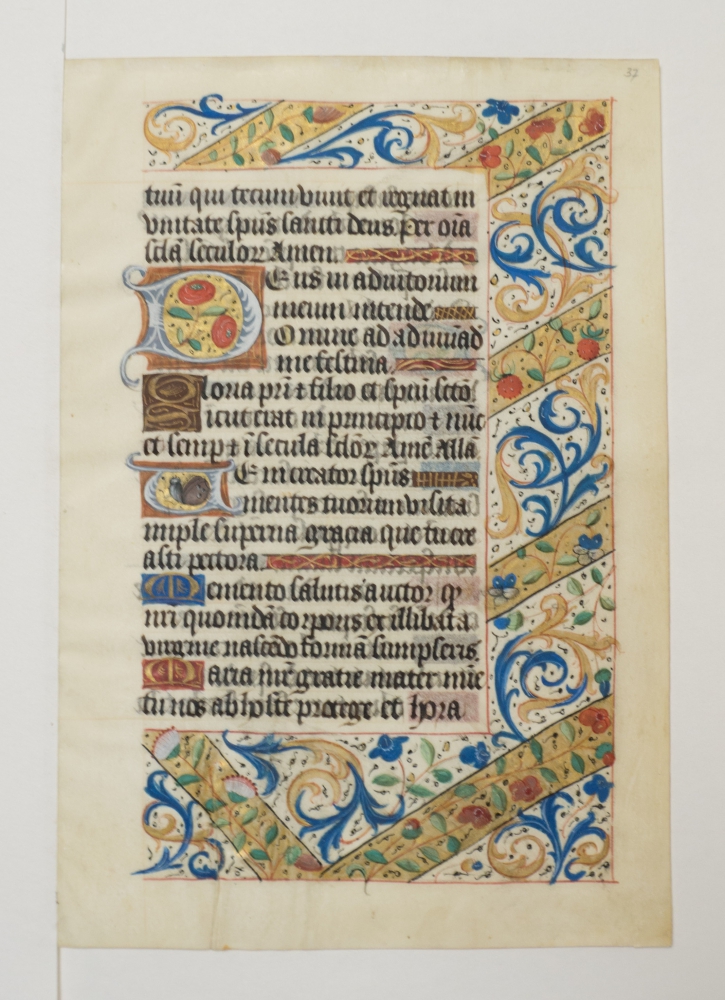 37
tuū qui tecum viuit et regnat in
vnitate sp̄us sancti deus Per oīa
sc̄la seculoꝝ Amen.
Deus in adiutorium
meum intende
Domine ad adiuuād
me festina.
Gloria pr̄i ⁊ filio et sp̄ui scto.
Sicut erat in principio ⁊ nūc
et semp ⁊ ī secula sc̄loꝝ Amē All̄a
Veni creator sp̄us
mentes tuorum visita
imple superna gracia que tu cre
asti pectora.
Memento salutis auctor ꝙ
nri quondā corporis ex illibata
virgine nascēdo formā sumpseris
Maria mr̄ gratie mater mīe
tu nos ab hoste protege et hora